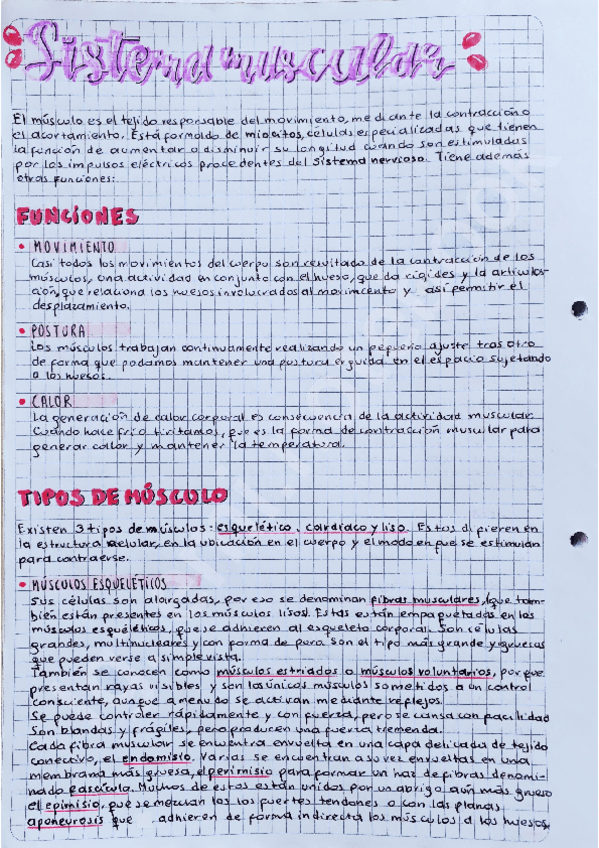 Sistema muscular
El músculo es el tejido responsable del movimiento, mediante la contracción o
el acortamiento. Está formado de miocitos, células especializadas que tienen
la función de aumentar o disminuir su longitud cuando son estimuladas
por los impulsos eléctricos procedentes del sistema nervioso. Tiene además
otras funciones:
FUNCIONES
• MOVIMIENTO
Casi todos los movimientos del cuerpo son resultado de la contracción de los
músculos, una actividad en conjunto con el hueso, que da rigides y la articulac-
ión, que relaciona los huesos involucrados al movimiento y así permitir el
desplazamiento.
• POSTURA
Los músculos trabajan continuamente realizando un pequeño ajuste tras otro
de forma que podamos mantener una postura erguida en el espacio sujetando
a los huesos.
• CALOR
La generación de calor corporal es consecuencia de la actividad muscular.
Cuando hace frío tiritamos, que es la forma de contracción muscular para
generar calor y mantener la temperatura.
TIPOS DE MÚSCULO
Existen 3 tipos de músculos: esquelético, cardíaco y liso. Estos difieren en
la estructura celular, en la ubicación en el cuerpo y el modo en que se estimulan
para contraerse.
• MÚSCULOS ESQUELÉTICOS
Sus células son alargadas, por eso se denominan fibras musculares, (que tam-
bién están presentes en los músculos lisos). Estas están empaquetadas en los
músculos esqueléticos, que se adhieren al esqueleto corporal. Son células
grandes, multinucleares y con forma de puro son el tipo más grande y gruesas
que pueden verse a simple vista.
También se conocen como músculos estriados o músculos voluntarios, porque
presentan rayas visibles y son los únicos músculos sometidos a un control
consciente, aunque a menudo se activan mediante reflejos.
Se puede controler rápidamente y con fuerza, pero se cansa con facilidad
Son blandas y frágiles, pero producen una fuerza tremenda.
Cada fibra muscular se encuentra envuelta en una capa delicada de tejido
conectivo, el endomisio. Varias se encuentran a su vez envueltas en una
membrana más gruesa, el perimisio para formar un haz de fibras denomi-
nado fascículo. Muchos de estos están unidos por un abrigo aún más grueso
el epimisio, que se mezclan los los fuertes tendones o con las planas
aponeurosis que adhieren de forma indirecta los músculos a los huesos,